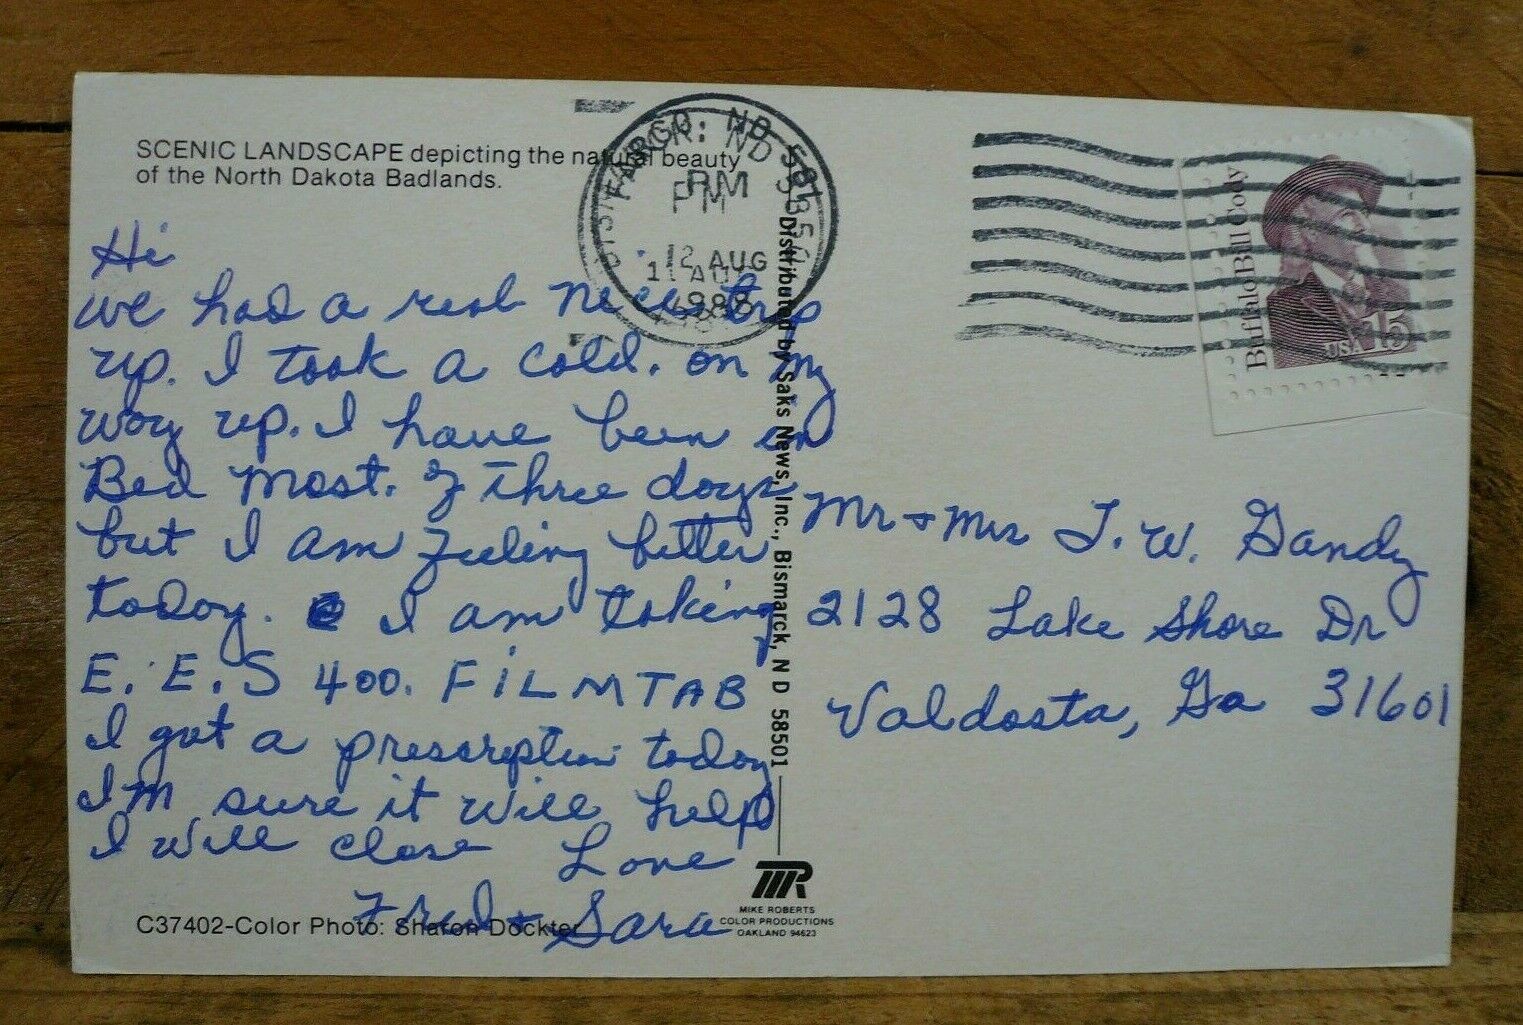 SCENIC LANDSCAPE depicting the natural beauty
of the North Dakota Badlands.
Hi
we had a real nice trip
up. I took a cold. on my
way up. I have been in
Bed most. of three days
but I am feeling better
today. I am taking
E. E. S 400. FILMTAB
I got a prescription today
I'm sure it will help
I will close Love
Fred + Sara
C37402-Color Photo: Sharon Dockter
Distributed by Saks News, Inc., Bismarck, N D 58501
MR
MIKE ROBERTS
COLOR PRODUCTIONS
OAKLAND 94623
FARGO, ND 581
PM
12 AUG
1988
Buffalo Bill Cody
USA 15
Mr + Mrs T. W. Gandy
2128 Lake Shore Dr
Valdosta, Ga 31601